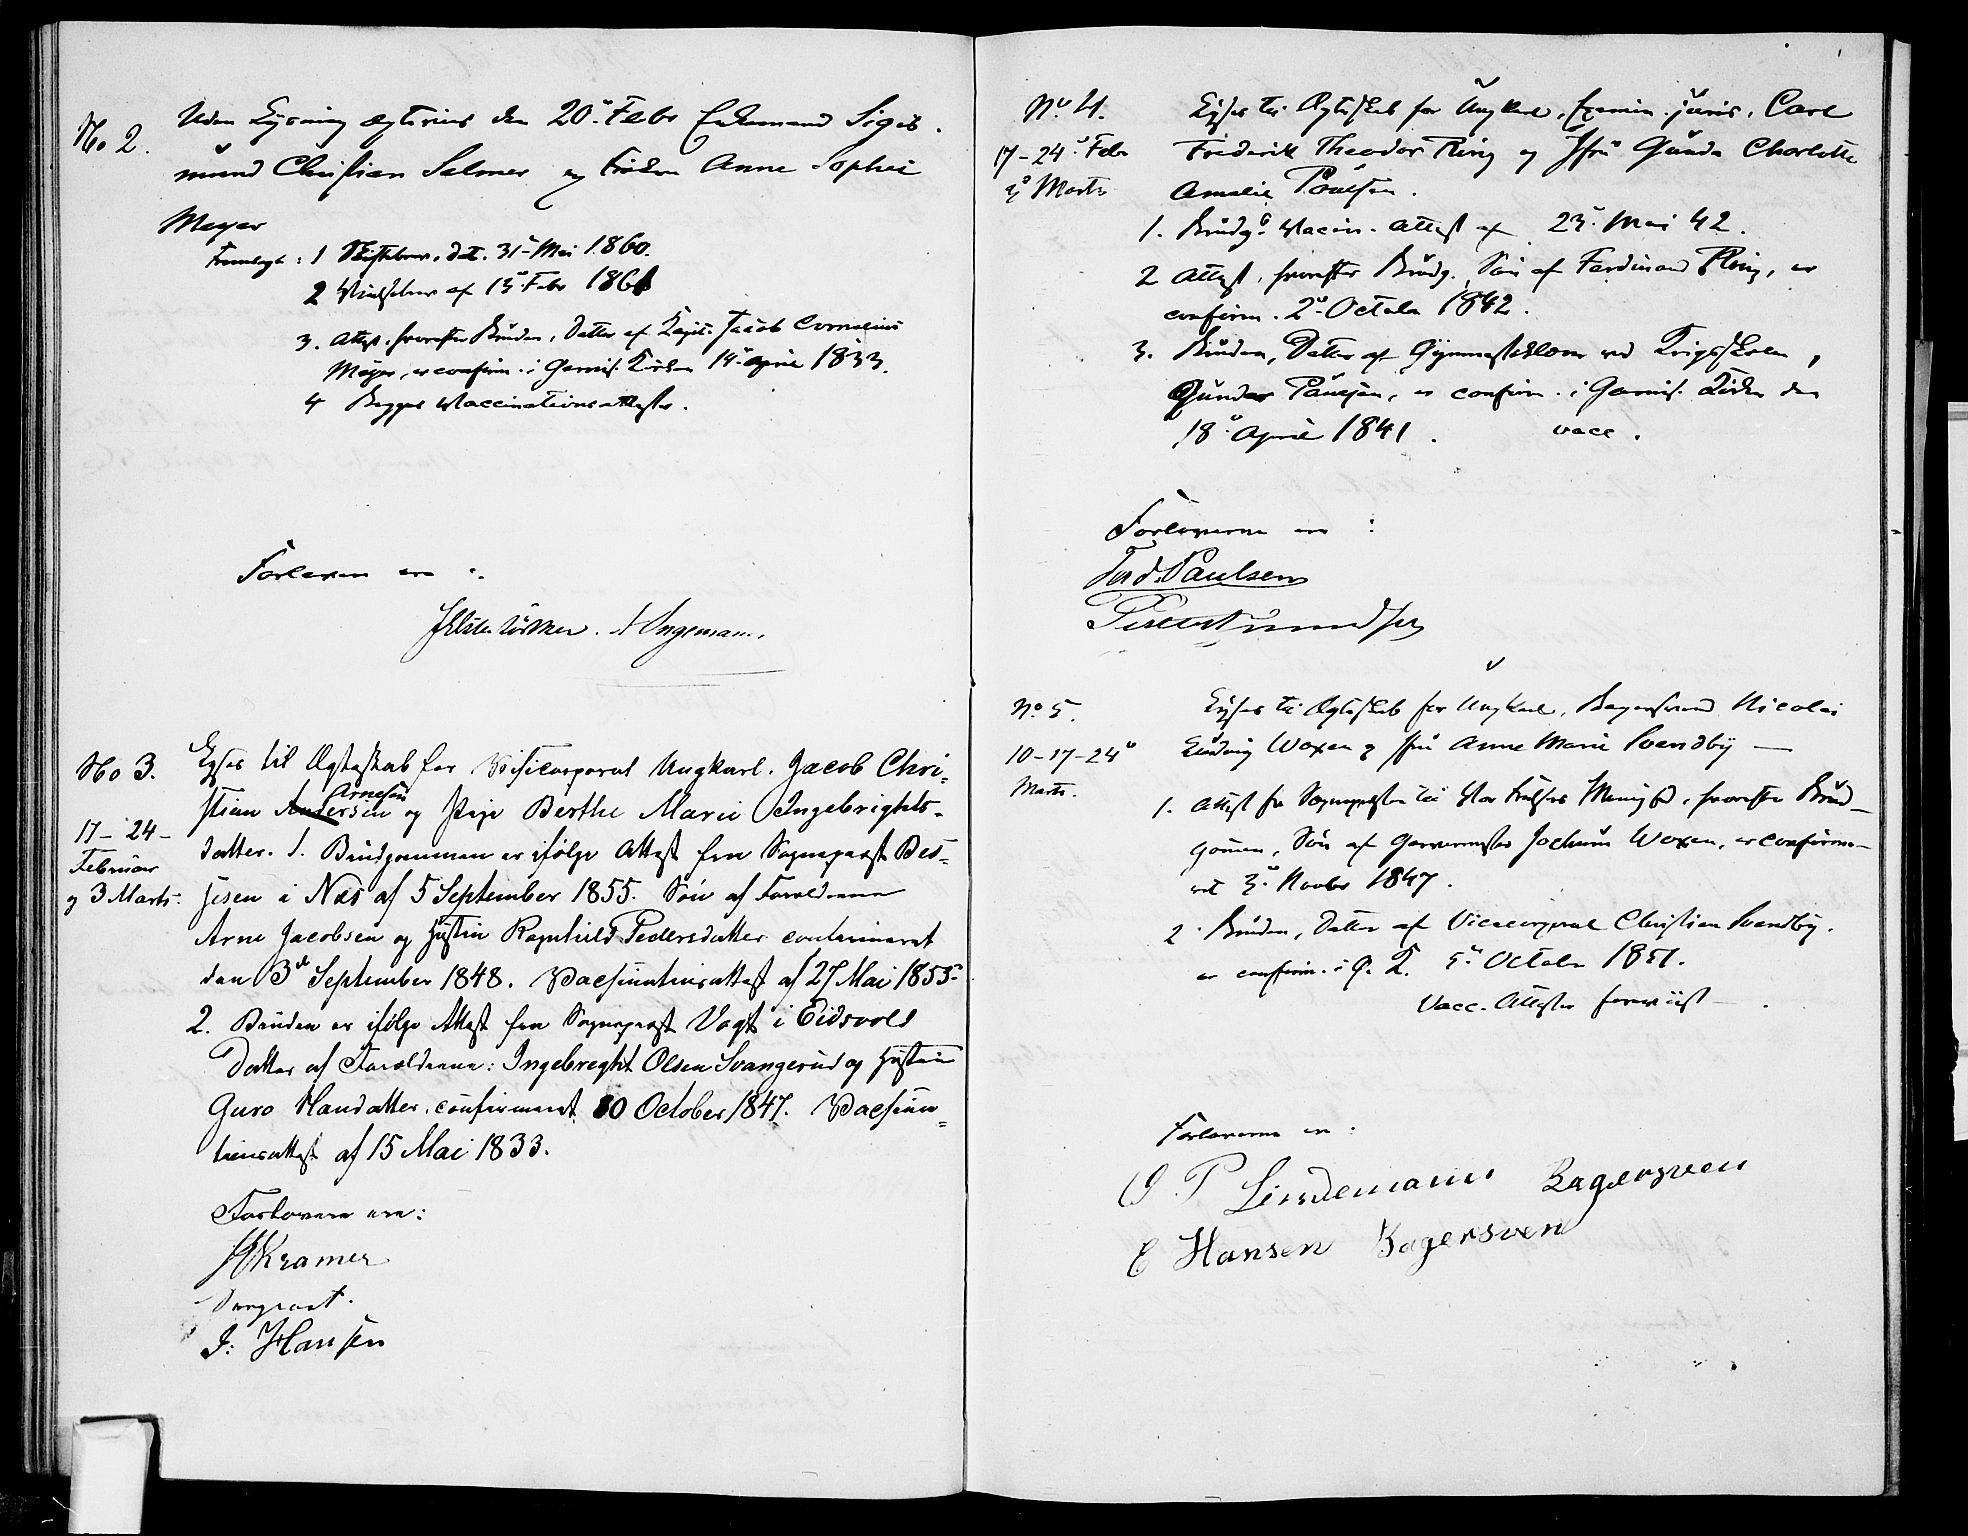 No 2.
Uden Lysning ægtevies den 20de Febr Enkemand Sigis-
mund Christian Selmer og Frøken Anne Sophie
Meyer
Fremlagt: 1 Skiftebrev, dat. 31te Mai 1860.
2 Vielsebrev af 15de Febr 1861
3. Attest, hvorefter Bruden, Datter af Capit. Jacob Cornelius
Meyer, er confirm. i Garnis. Kirken 14de April 1833.
4 Begges Vaccinationsattester.
Forlovere ere:
A Ingemann.
No 3.
17 - 24 -
Februar
og 3 Marts.
Lyses til Ægteskab for Visecorporal Ungkarl. Jacob Chri-
Arnesen
stian Andersen og Pige Berthe Marie Ingebrights-
datter. 1. Brudgommen er ifølge Attest fra Sogneprest
i Næs af 5 September 1855. Søn af Forældrene
Arne Jacobsen og Hustru Ragnhild Pedersdatter confirmeret
den 3de September 1848. Vacsinationsattest af 27 Mai 1855.
2. Bruden er ifølge Attest fra Sogneprest Vogt i Eidsvold
Datter af Forældrene: Ingebreght Olsen Svangerud og Hustru
Guro Hansdatter. confirmeret 10 October 1847. Vacsina-
tionsattest af 15 Mai 1833.
Forlovere ere:
Kramer
Sergeant.
J: Hansen
No 4.
17 - 24de Febr
3 Marts
Lyses til Ægteskab for Ungkarl, Examin. juris. Carl
Frederik Theodor Ring og Jfr Gunda Charlotte
Amalie Poulsen.
1. Brudgs Vaccin. Attest af 23de Mai 42.
2 Attest, hvorefter Brudg. Søn af Ferdinand Ring, er
confirm. 2den Octobr 1842.
3. Bruden, Datter af Gymnastiklærer ved Krigsskolen,
Gunder Poulsen, er confirm. i Garnis. Kirken den
18de April 1841. vacc.
Forloverne ere:
Ferd. Paulsen
No 5.
10-17-24de
Marts.
Lyses til Ægteskab for Ungkarl, Bagersvend Nicolai
Ludvig Woxen og Jfr Anne Marie Svendby —
1. Attest fra Sognepresten til Vor Frelsers Menighed, hvorefter Brud-
gommen, Søn af Garvermester Jochum Woxen, er confirme-
ret 3de Novbr 1847.
2 Bruden, Datter af Vicecorporal Christian Svendby.
er confirm. i G. K. 5te Octobr 1851.
Vacc. Attester foreviist.
Forloverne ere:
P Lindemann Bagersven
E Hansen Bagersven